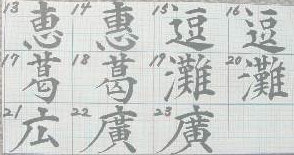 13 恵 14 惠 15 逗 16 逗
17 葛 18 葛 19 灘 20 灘
21 広 22 廣 23 廣